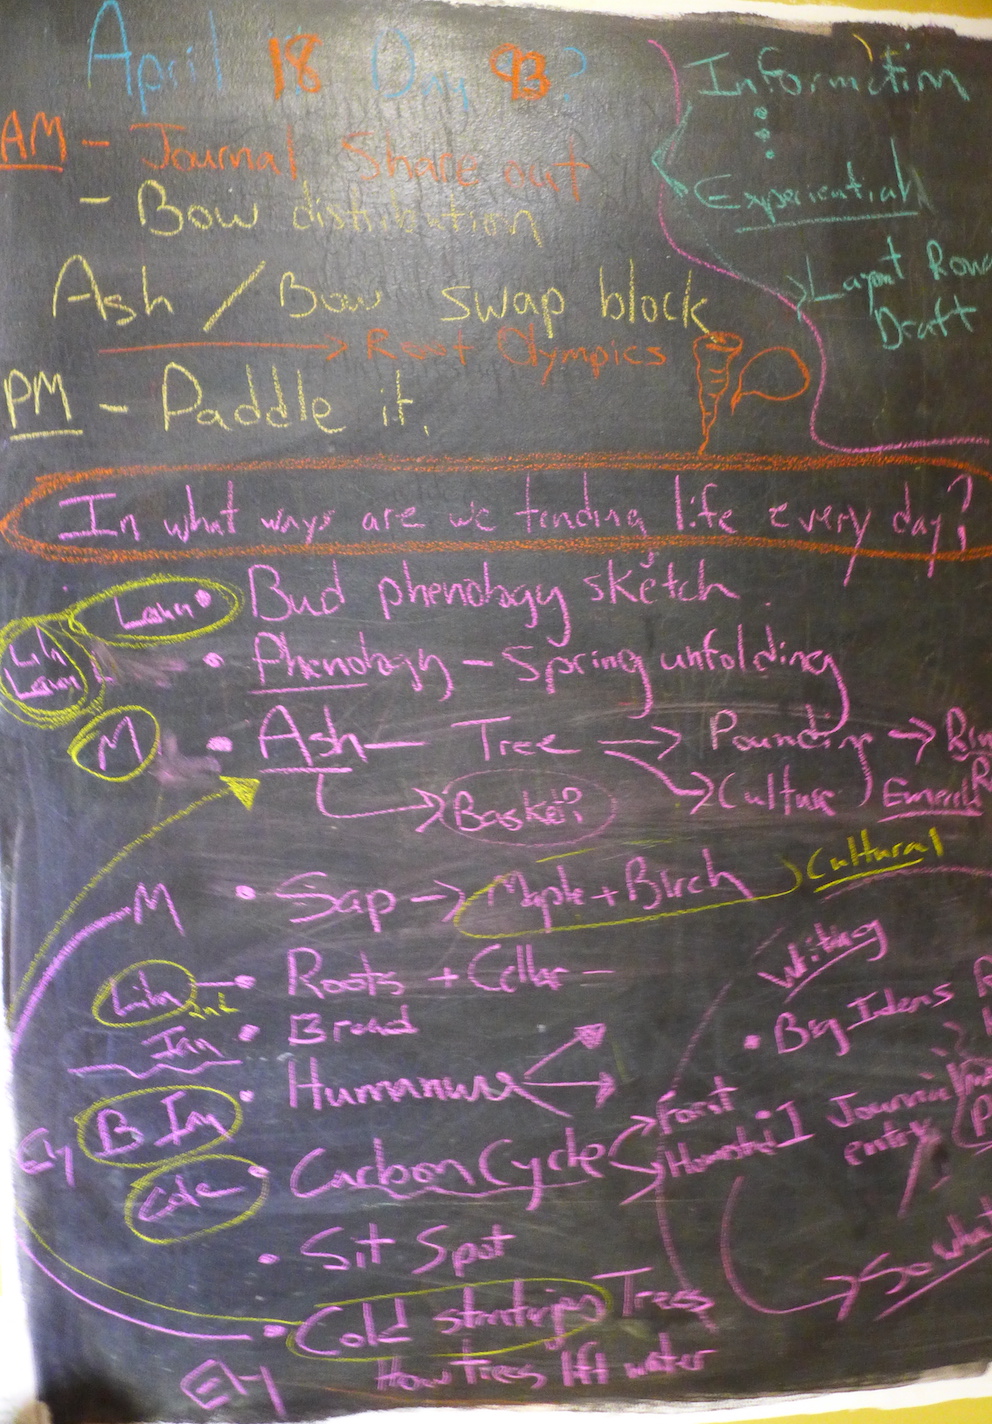 April 18 Day 93?
AM - Journal Share out
- Bow distribution
Ash / Bow swap block
Root Olympics
PM - Paddle it.
Information
Experiential
Layout
Draft
In what ways are we tending life every day?
Bud phenology sketch
Phenology - Spring unfolding
M Ash - Tree Pounding
Basket? Culture
M Sap Maple + Birch Cultural
Roots + Cellar -
2nd
Ian Bread
Humanure
B Ian
Ely Carbon Cycle
Cole
Sit Spot
Cold strategies Trees
Ely How trees lift water
Writing
Big Ideas
1 Journal
entry
So what